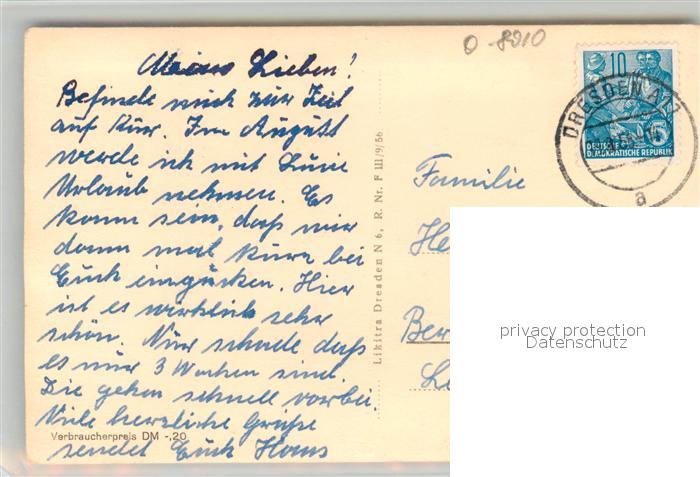 O-8010
Meine Lieben!
Befinde mich zur Zeit
auf Kur. Im August
werde ich mit
Urlaub nehmen. Es
kann sein, daß wir
dann mal kurz bei
Euch eingucken. Hier
ist es wirklich sehr
schön. Nur schade daß
es nur 3 Wochen sind.
Die gehen schnell vorbei.
Viele herzliche Grüße
sendet Euch Hans
Verbraucherpreis DM -,20
Likitra Dresden N 6, R. Nr. F III/9/56
10
DEUTSCHE
DEMOKRATISCHE REPUBLIK
DRESDEN A17
a
Familie
He
Ber
privacy protection
Datenschutz